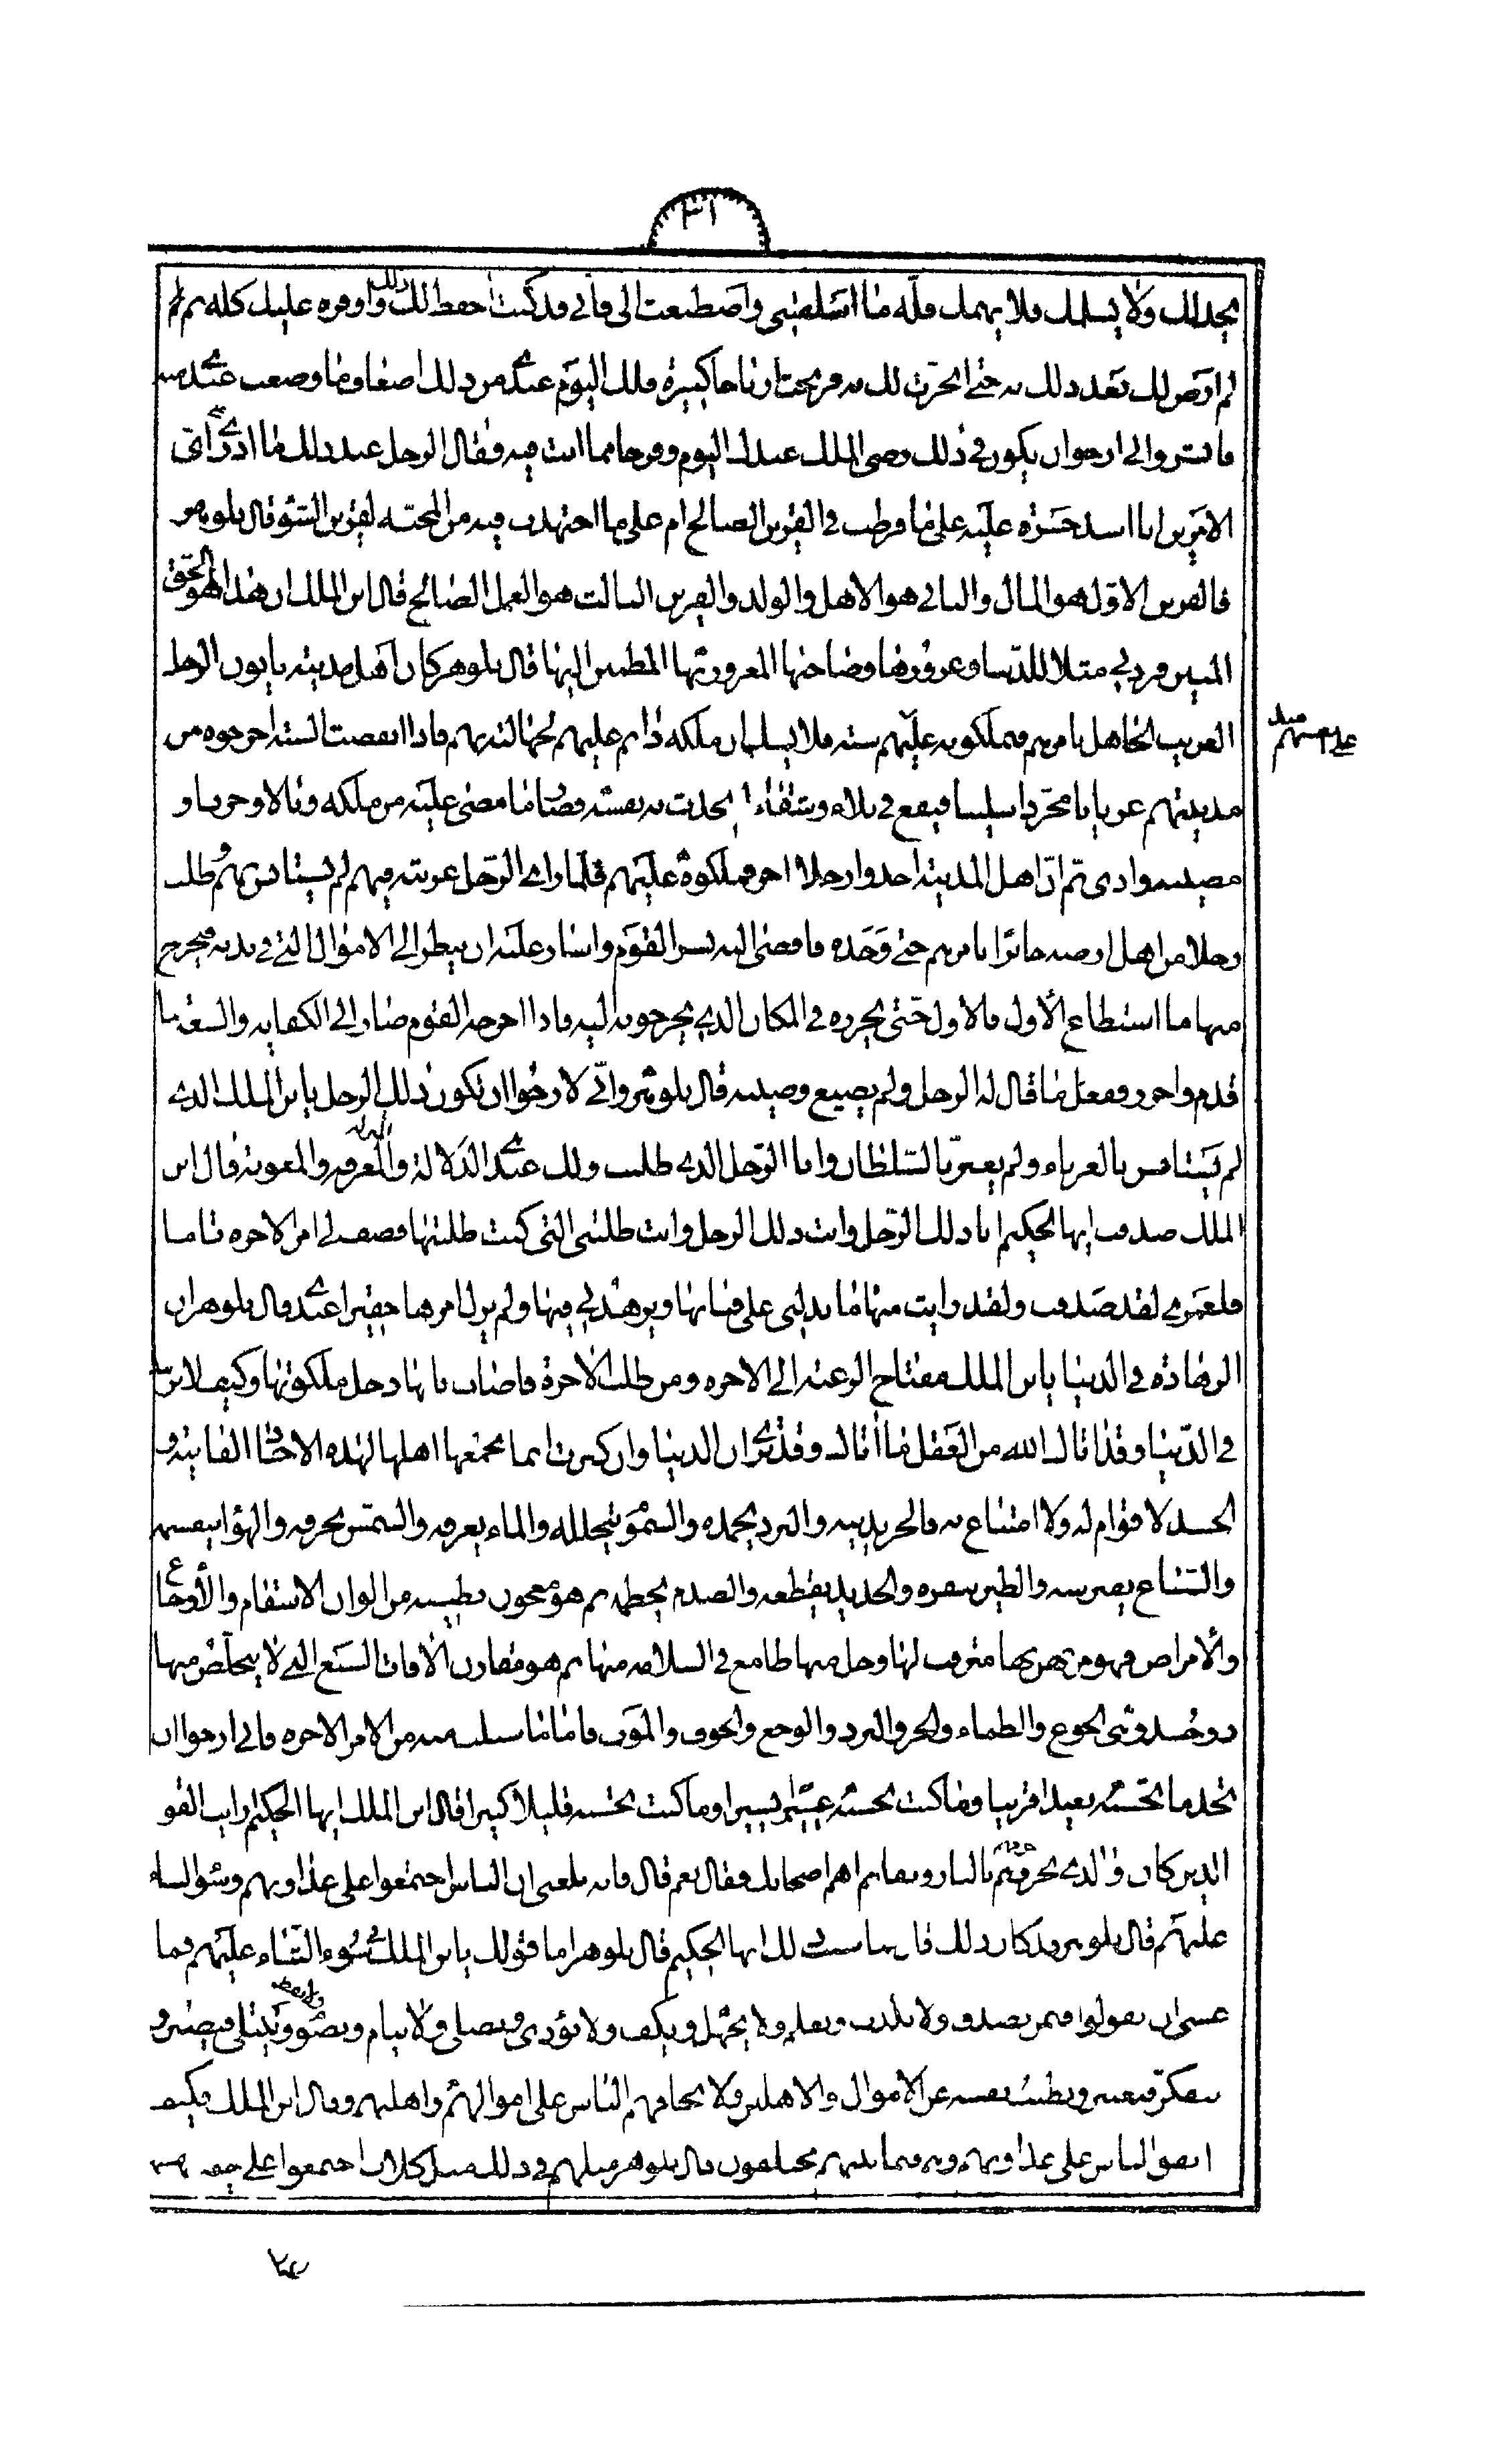 ٣١
يخذلك ولا يسلمك فلا يهمك قلة ما اسلفتني واصطنعت الي فاني قد كنت احفظ لك ذلك واوفره عليك كله ثم لم
لم ارض لك بعد ذلك به حتى اتجرت لك به فربحت ارباحا كبيرة فلك اليوم عندي من ذلك اضعاف ما وضعت عندي منه
فابشر واني ارجو ان يكون في ذلك رضى الملك عنك اليوم وفرجا مما انت فيه فقال الرجل عند ذلك ما ادري على اي
الامرين انا اشد حسرة عليه على ما فرطت في القرين الصالح ام على ما اجتهدت فيه من المحبة لقرين السوء قال بلوهر
فالقرين الاول هو المال والثاني هو الاهل والولد والقرين الثالث هو العمل الصالح قال ابن الملك ان هذا لهو الحق
المبين فزدني مثلا للدنيا وغرورها وصاحبها المغرور بها المطمئن اليها قال بلوهر كان اهل مدينة ياتون الرجل
الغريب الجاهل بامرهم فيملكونه عليهم سنة فلا يشك ان ملكه دائم عليهم لجهالته بهم فاذا انقضت السنة اخرجوه من
مدينتهم عريانا مجردا سليبا فيقع في بلاء وشقاء لم يحدث به نفسه فصار ما مضى عليه من ملكه وبالا وحزنا و
مصيبة واذى ثم ان اهل المدينة اخذوا رجلا اخر فملكوه عليهم فلما راى الرجل غربته فيهم لم يستانس بهم وطلب
رجلا من اهل ارضه خابرا بامرهم حتى وجده فافضى اليه بسر القوم واشار عليه ان ينظر الى الاموال التي في يديه فيخرج
منها ما استطاع الاول فالاول حتى يحرزه في المكان الذي يخرجونه اليه فاذا اخرجه القوم صار الى الكفاية والسعة بما
قدم واحرز ففعل ما قال له الرجل ولم يضيع وصيته قال بلوهر واني لارجو ان تكون ذلك الرجل يابن الملك الذي
لم يستانس بالغرباء ولم يغتر بالسلطان وانا الرجل الذي طلبت ولك عندي الدلالة والمعرفة والمعونة قال ابن
الملك صدقت ايها الحكيم انا ذلك الرجل وانت ذلك الرجل وانت طلبتي التي كنت طلبتها فصف لي امر الاخرة تاما
فلعمري لقد صدقت ولقد رايت منها ما يدلني على فنائها ويزهدني فيها ولم يزل امرها حقيرا عندي قال بلوهر ان
الزهادة في الدنيا يابن الملك مفتاح الرغبة الى الاخرة ومن طلب الاخرة فاصاب بابها دخل ملكوتها وكيف لا تزهد
في الدنيا وقد اتاك الله من العقل ما اتاك وقد ترى ان الدنيا وان كثرت انما يجمعها اهلها لهذه الاجساد الفانية و
الجسد لا قوام له ولا امتناع به فالحر يذيبه والبرد يجمده والسموم يتخلله والماء يغرقه والشمس تحرقه والهواء يسقمه
والسباع يفترسه والطير ينقره والحديد يقطعه والصدم يحطمه ثم هو معجون بطينة من الوان الاسقام والاوجاع
والامراض فهو مرتهن بها مترقب لها وجل منها طامع في السلامة منها ثم هو مقارن الافات السبع التي لا يتخلص منها
ذو جسد وهي الجوع والظماء والحر والبرد والوجع والخوف والموت فاما ما سالت عنه من الامر الاخرة فاني ارجو ان
تجد ما تحسبه بعيدا قريبا وما كنت تحسبه عسيرا يسيرا وما كنت تحسبه قليلا كثيرا قال ابن الملك ايها الحكيم ارايت القوم
الذين كان والدي حرقهم بالنار ونفاهم اهم اصحابك فقال نعم قال فانه بلغني ان الناس اجتمعوا على عداوتهم وسوء الثناء
عليهم قال بلوهر قد كان ذلك قال فما سبب ذلك ايها الحكيم قال بلوهر اما قولك يابن الملك في سوء الثناء عليهم فما
عسى ان يقولوا فيمن يصدق ولا يكذب ويعلم ولا يجهل ويكف ولا يؤذي ويصلي ولا ينام ويصوم ولا يفطر ويبتلى فيصبر و
يتفكر فيعتبر ويطيب نفسه عن الاموال والاهلين ولا يخافهم الناس على اموالهم واهليهم وقال ابن الملك فكيف
اتفق الناس على عداوتهم وهم فيما بينهم مختلفون قال بلوهر مثلهم في ذلك مثل كلاب اجتمعوا على جيفة